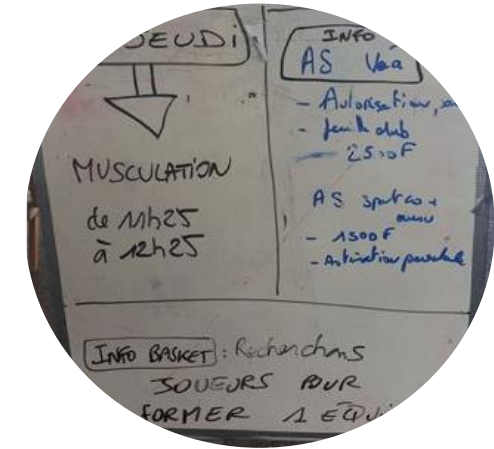 JEUDI
MUSCULATION
de 11h25
à 12h25
INFO
AS Vaa
- Autorisation
- feuille club
2500F
AS
- 1500F
- Autorisation parentale
INFO BASKET : Recherchons
JOUEURS POUR
FORMER 1 ÉQUI